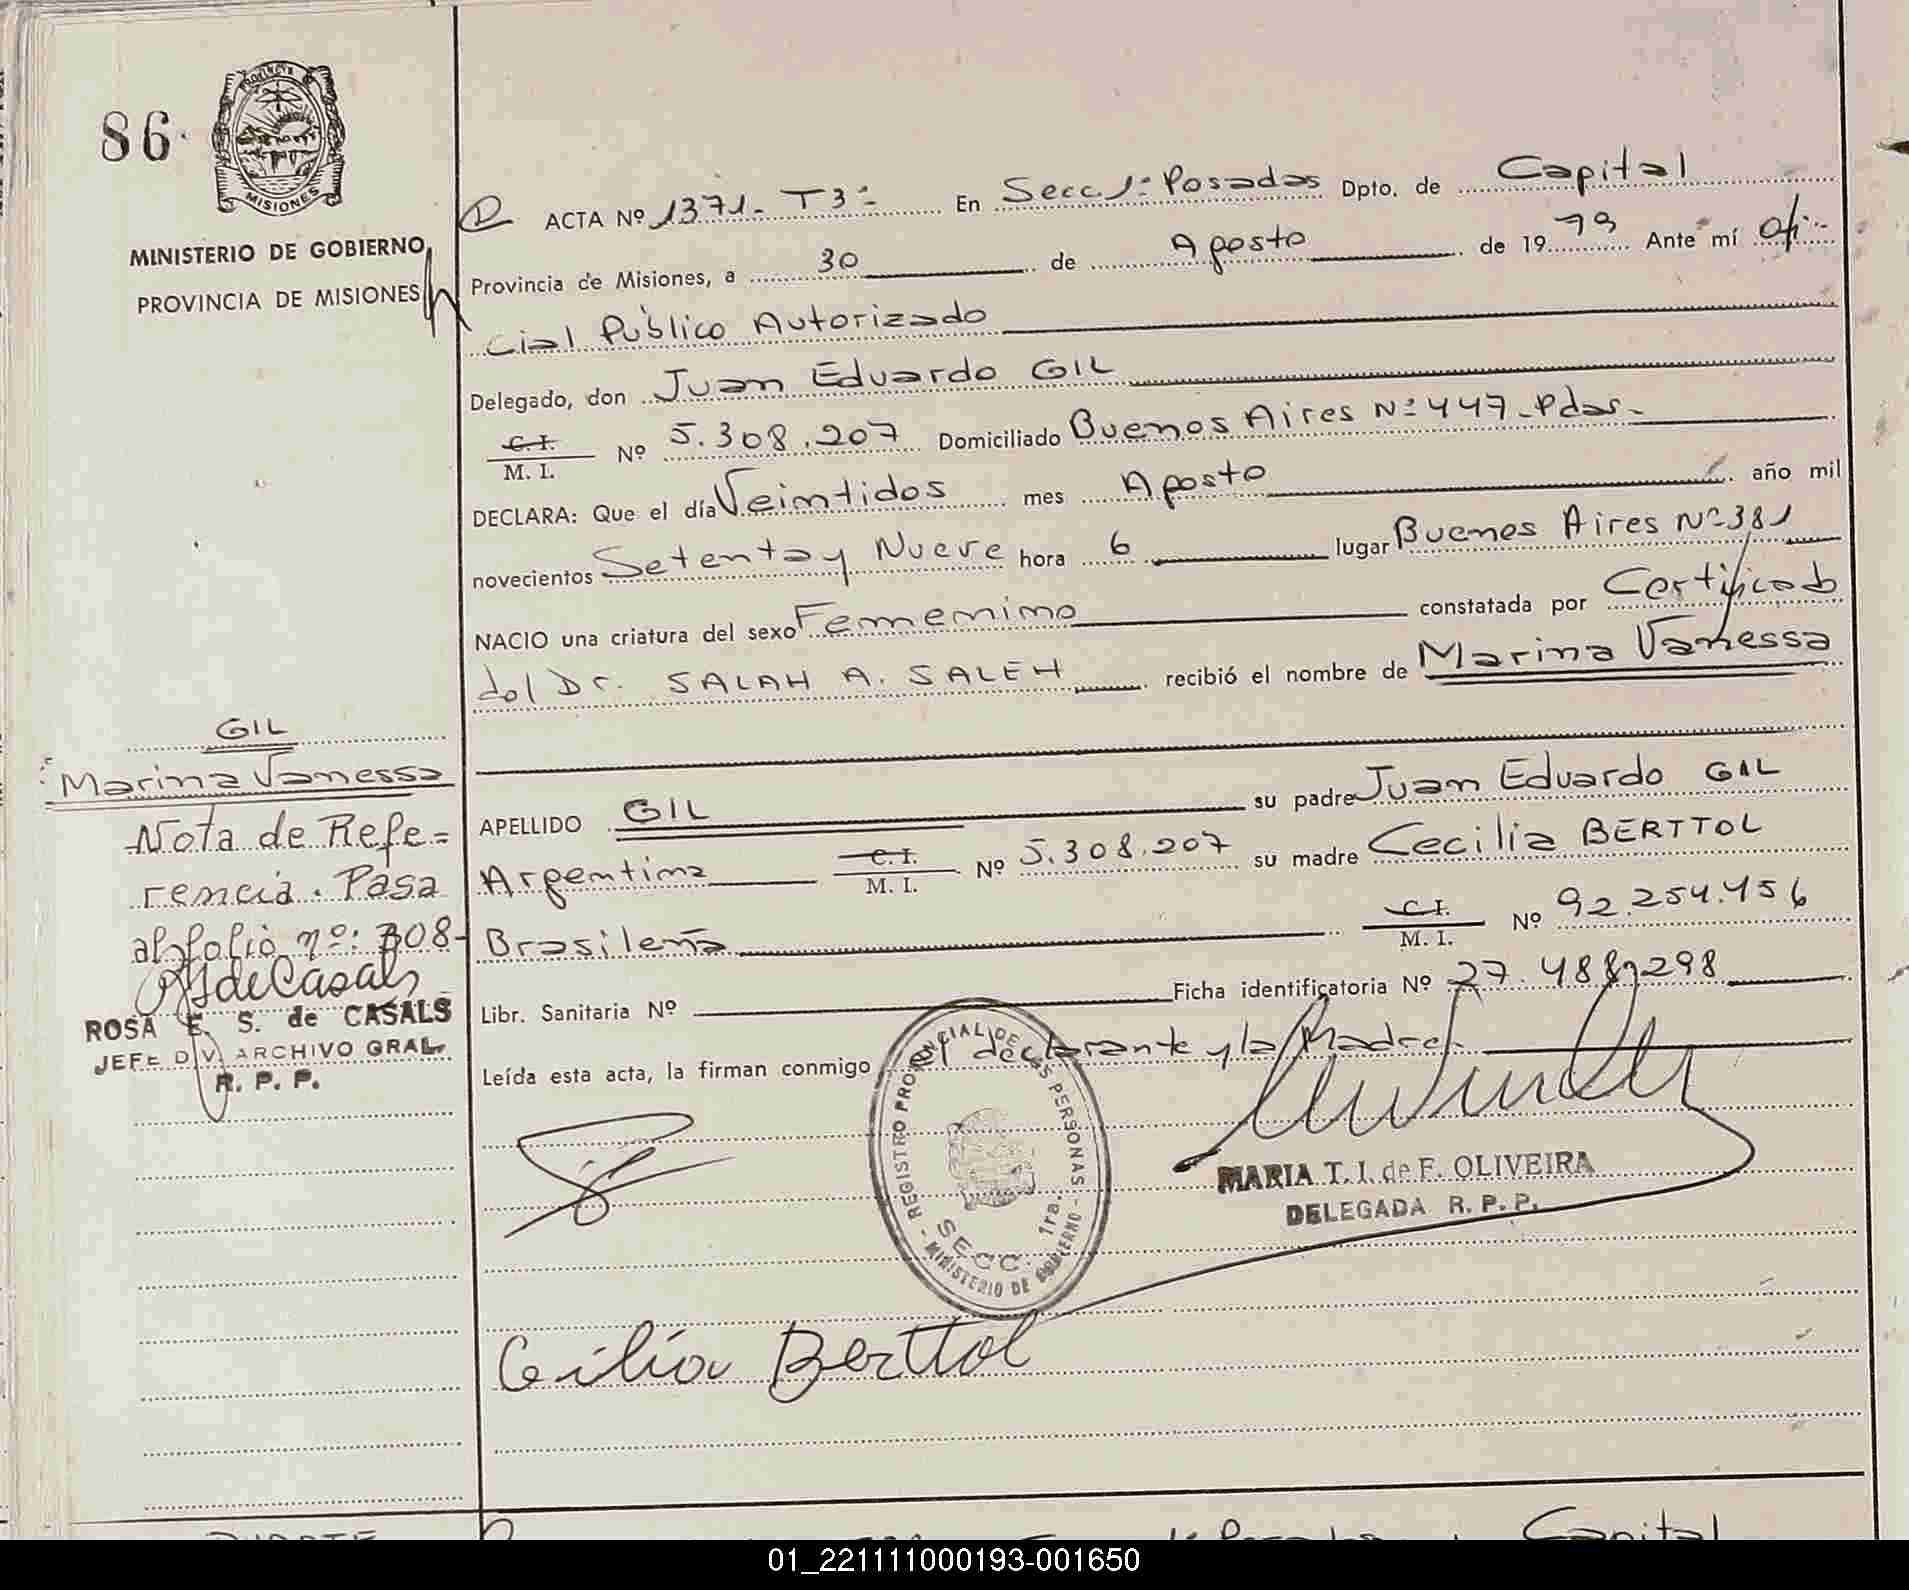 86.
PROVINCIA DE
MISIONES
MINISTERIO DE GOBIERNO
PROVINCIA DE MISIONES
ACTA Nº 1371- T3º- En Secc. 1º Posadas Dpto. de Capital
Provincia de Misiones, a 30 de Agosto de 1979 Ante mí Ofi-
cial Público Autorizado
Delegado, don Juan Eduardo GIL
C. I.
M. I. Nº 5.308.207 Domiciliado Buenos Aires Nº 447-Pdas-
DECLARA: Que el día Veintidos mes Agosto año mil
novecientos Setenta y Nueve hora 6 lugar Buenos Aires Nº 381
NACIO una criatura del sexo Femenino constatada por Certificado
del Dr. SALAH A. SALEH recibió el nombre de Marina Vanessa
APELLIDO GIL su padre Juan Eduardo GIL
Argentina C. I.
M. I. Nº 5.308.207 su madre Cecilia BERTTOL
Brasileña C. I.
M. I. Nº 92.254.456
Libr. Sanitaria Nº Ficha identificatoria Nº 27.488.298
Leída esta acta, la firman conmigo el declarante y la Madre-
GIL
Marina Vanessa
Nota de Refe=
rencia. Pasa
al folio nº: 308-
RSdeCasals
ROSA E. S. de CASALS
JEFE DIV. ARCHIVO GRAL.
R. P. P.
REGISTRO PROVINCIAL DE LAS PERSONAS
SECC. 1ra.
MINISTERIO DE GOBIERNO
MARIA T. I. de F. OLIVEIRA
DELEGADA R. P. P.
Cecilia Berttol
Capital
01_221111000193-001650